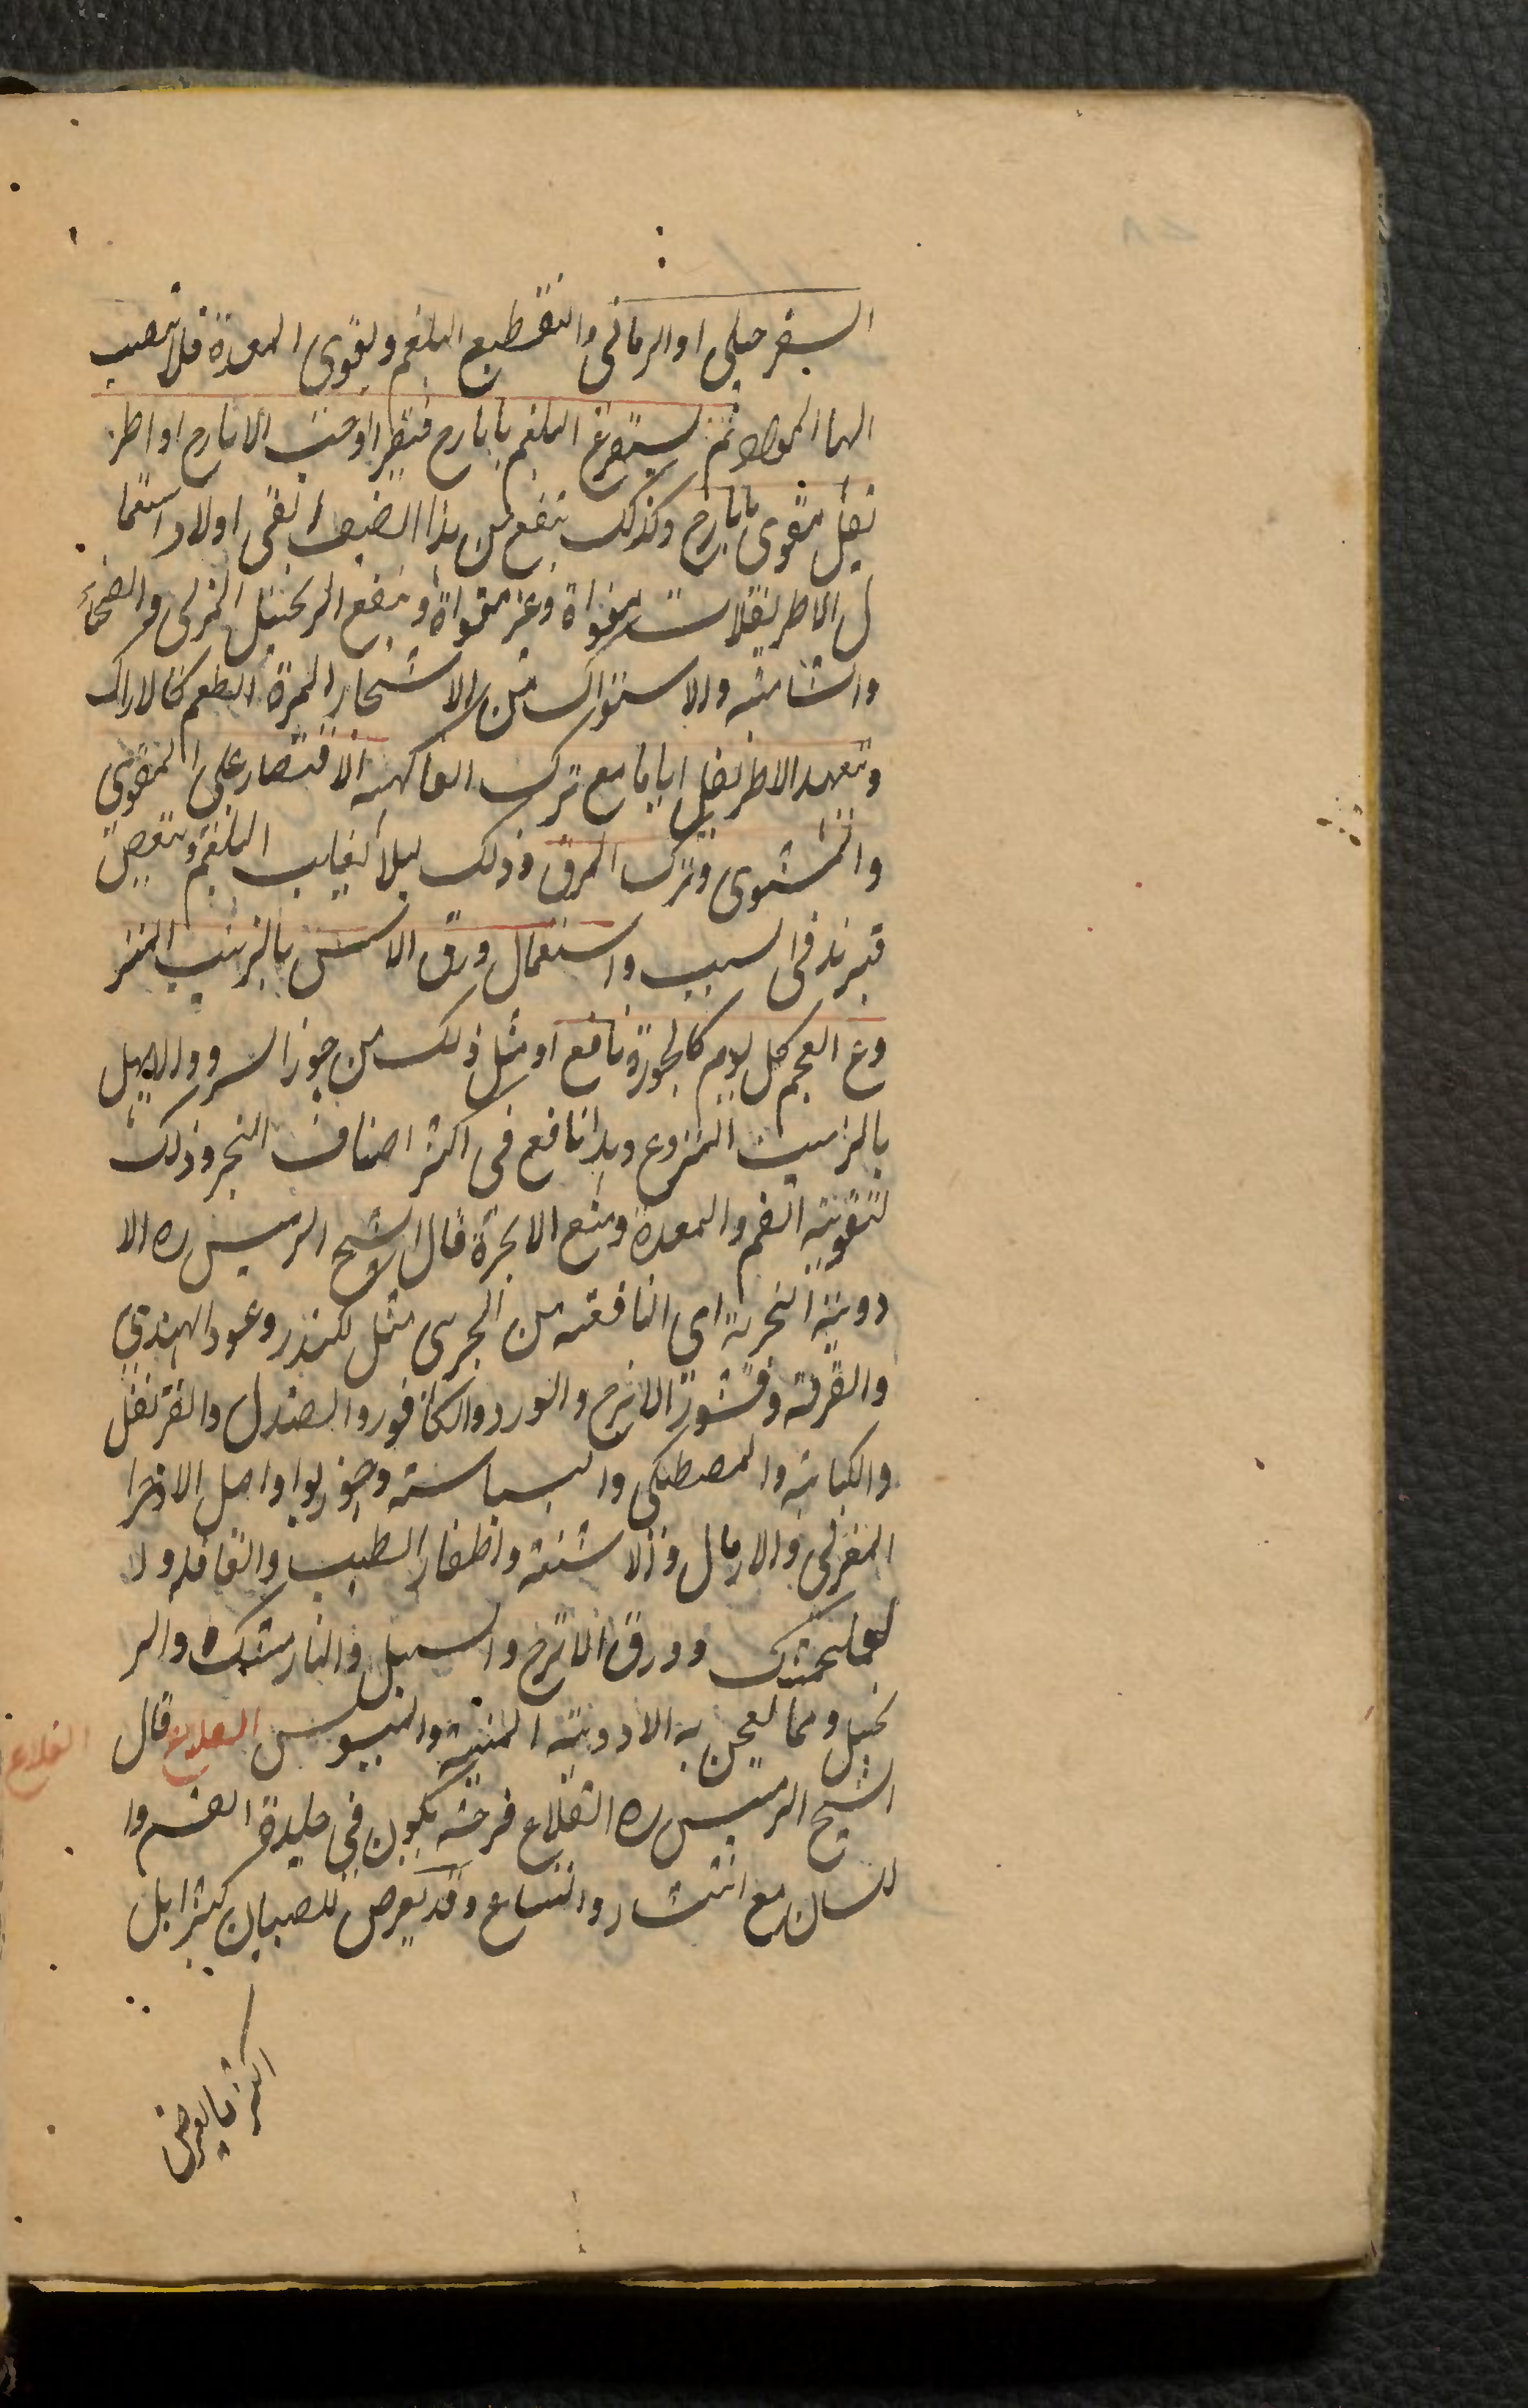 السفرجلى او الرمانى والتقطيع البلغم ولقوى المعدة فلا تنصب
اليها المواد ثم يستفرغ البلغم بايارج فيقرا او حب الايارج او اطر
يفل مقوى بايارج وكذلك ينفع من هذا الصنف القى اولا واستعما
ل الاطريفلات مقواة وغير مقواة وينفع الزنجبيل المربى والصحنا
والشامية والاستواك من الاشجار المرة الطعم كالاراك
وتعهد الاطريفل اياما مع ترك الفاكهة الاقتصار على المقوى
والمشوى وترك المرق وذلك ليلا البلغم
فى السبب واستعمال ورق الاس بالزبيب المنز
وع العجم كل يوم كالجوزة نافع او مثل ذلك من جوز السرو والابهل
بالزبيب المنزوع وهذا نافع فى اكثر اصناف البخر وذلك
لتقوية الفم والمعدة ومنع الابخرة قال الشيخ الرييس ره الا
دوية البخرية اى النافعة من مثل كندر وعود الهندى
والقرفة وقشور الاترج والورد والكافور والصندل والقرنفل
والكبابة والمصطكى والبسباسة وجوزبوا واصل الاذخر
والارمال والاشنة واظفار الطيب والقاقلة و
لفلنجمشك وورق الاترج والسنبل والنارمشك والز
نجبيل ومما يعجن به الادوية القلاع قال
الشيخ الرييس ره القلاع قرحة يكون فى جليدة الفم وا
للسان مع انتشار واتساع وقد يعرض للصبيان كثيرا بل
اكثر ما يعرض
القلاع